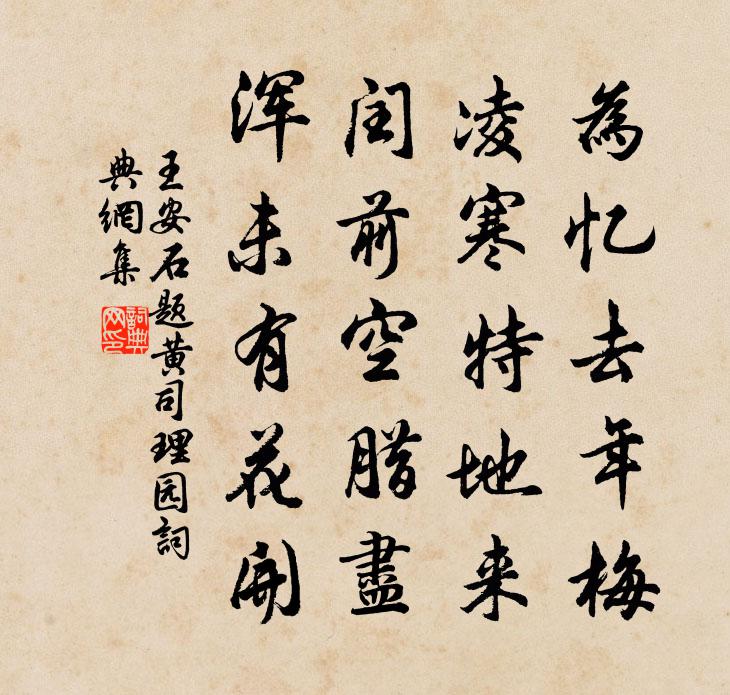 為忆去年梅
凌寒特地来
闰前空腊盡
浑未有花開
王安石题黄司理园詞
典網集
詞典網印